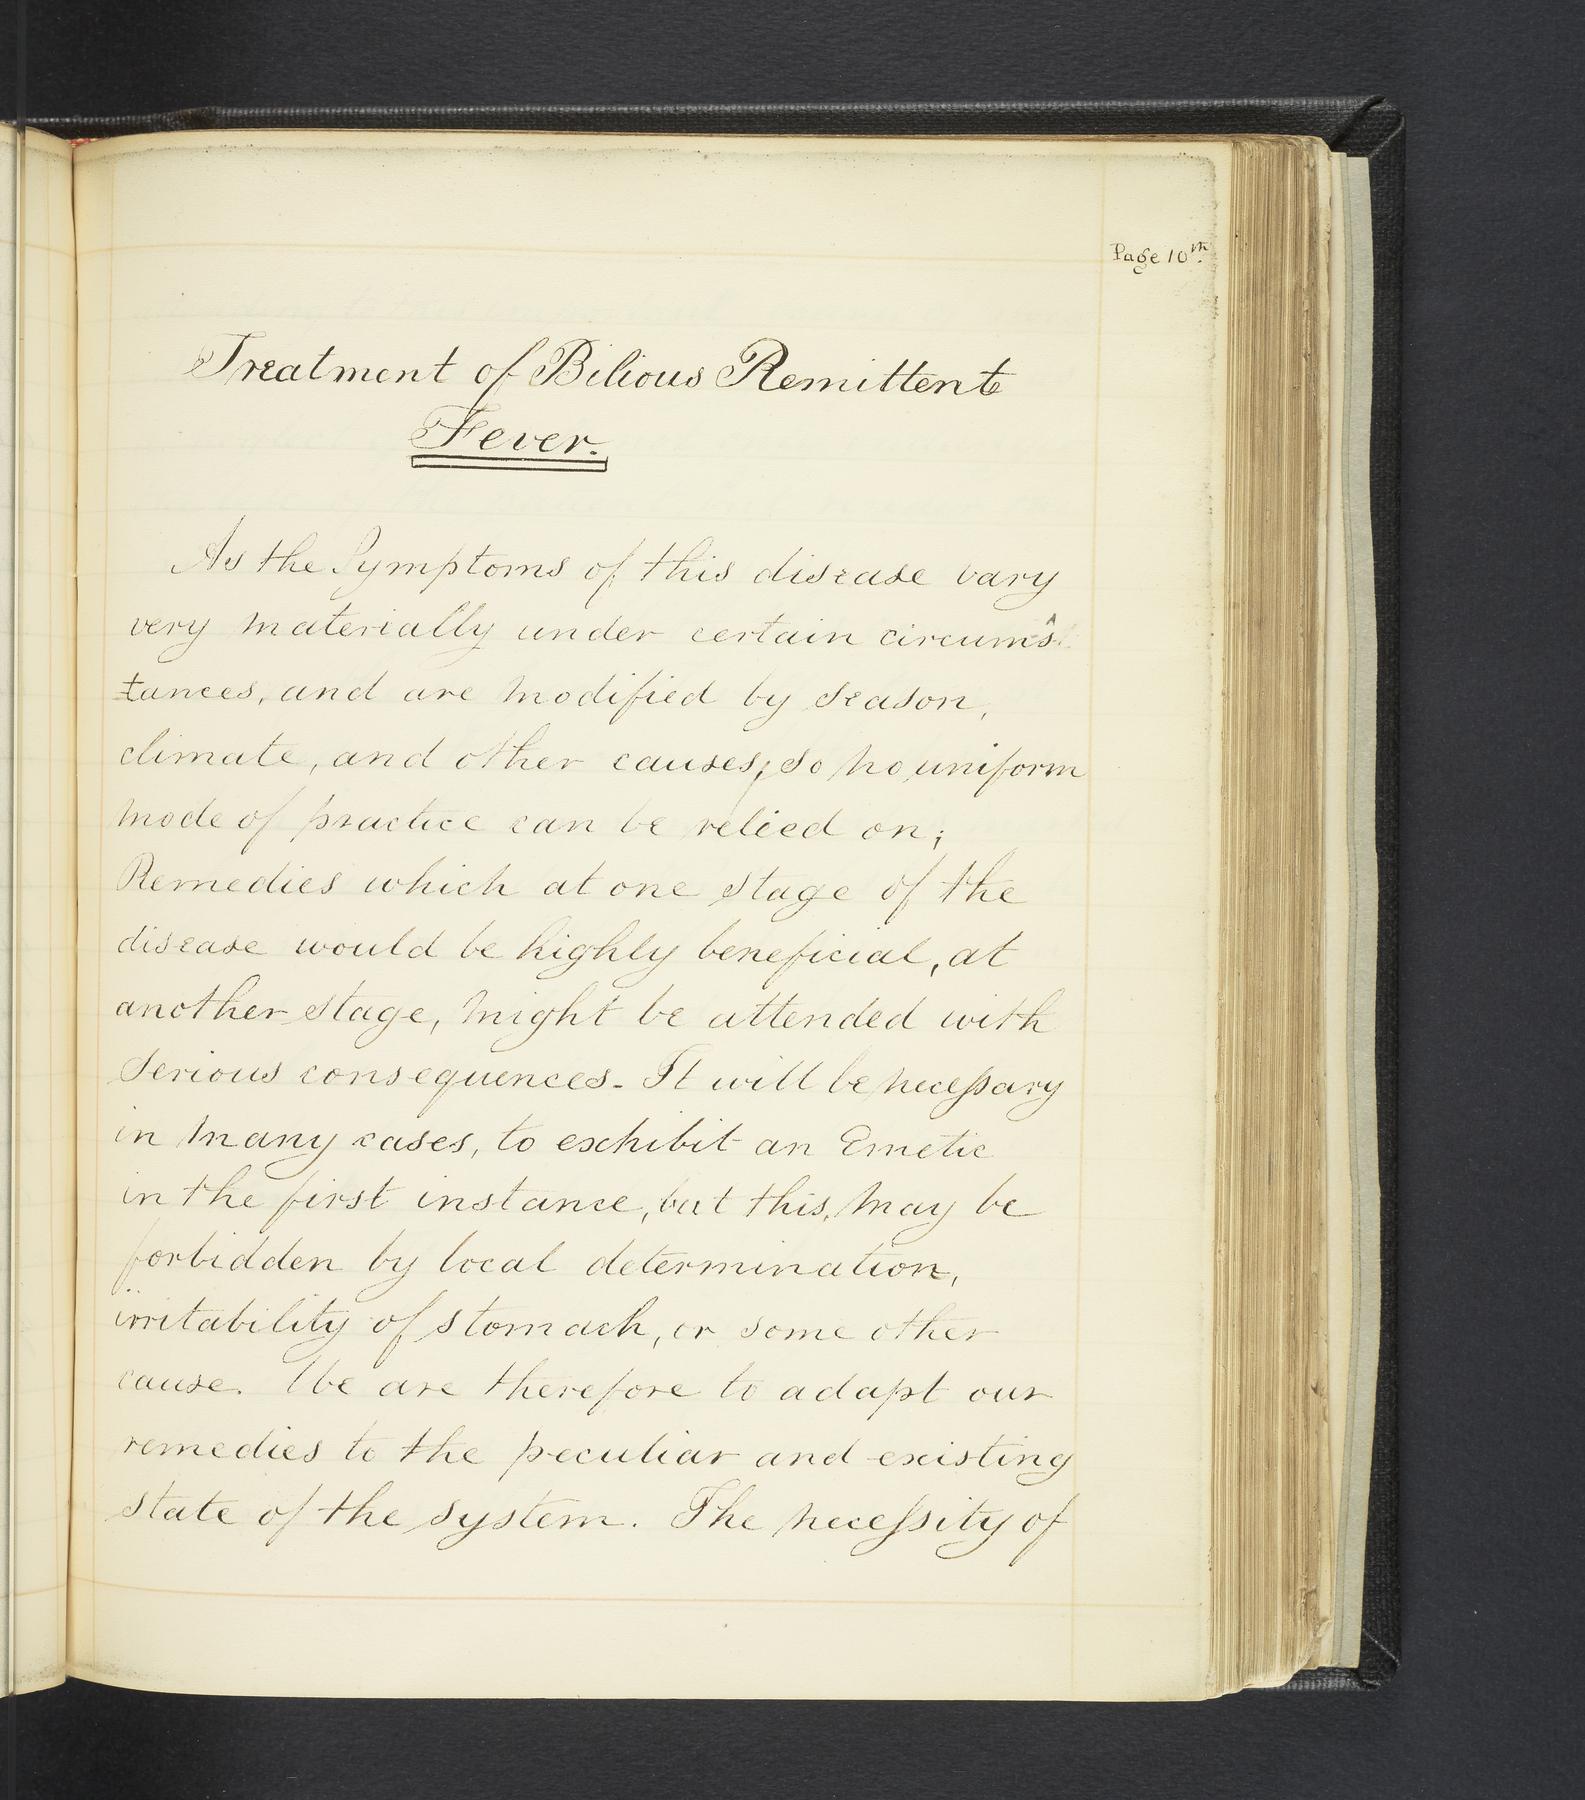 Page 10th.
Treatment of Bilious Remittent
Fever.
As the Symptoms of this disease vary
very materially under certain circums
tances, and are modified by season,
climate, and other causes; so no uniform
mode of practice can be relied on;
Remedies which at one stage of the
disease would be highly beneficial, at
another stage, might be attended with
serious consequences. It will be necessary
in many cases, to exhibit an Emetic
in the first instance, but this, may be
forbidden by local determination,
irritability of stomach, or some other
cause. We are therefore to adapt our
remedies to the peculiar and existing
state of the system. The necessity of